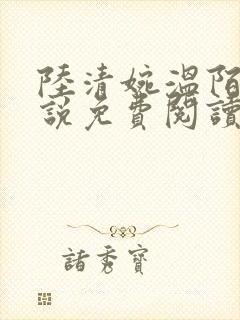 陸清婉溫陌
說免費閱讀
諸秀寶